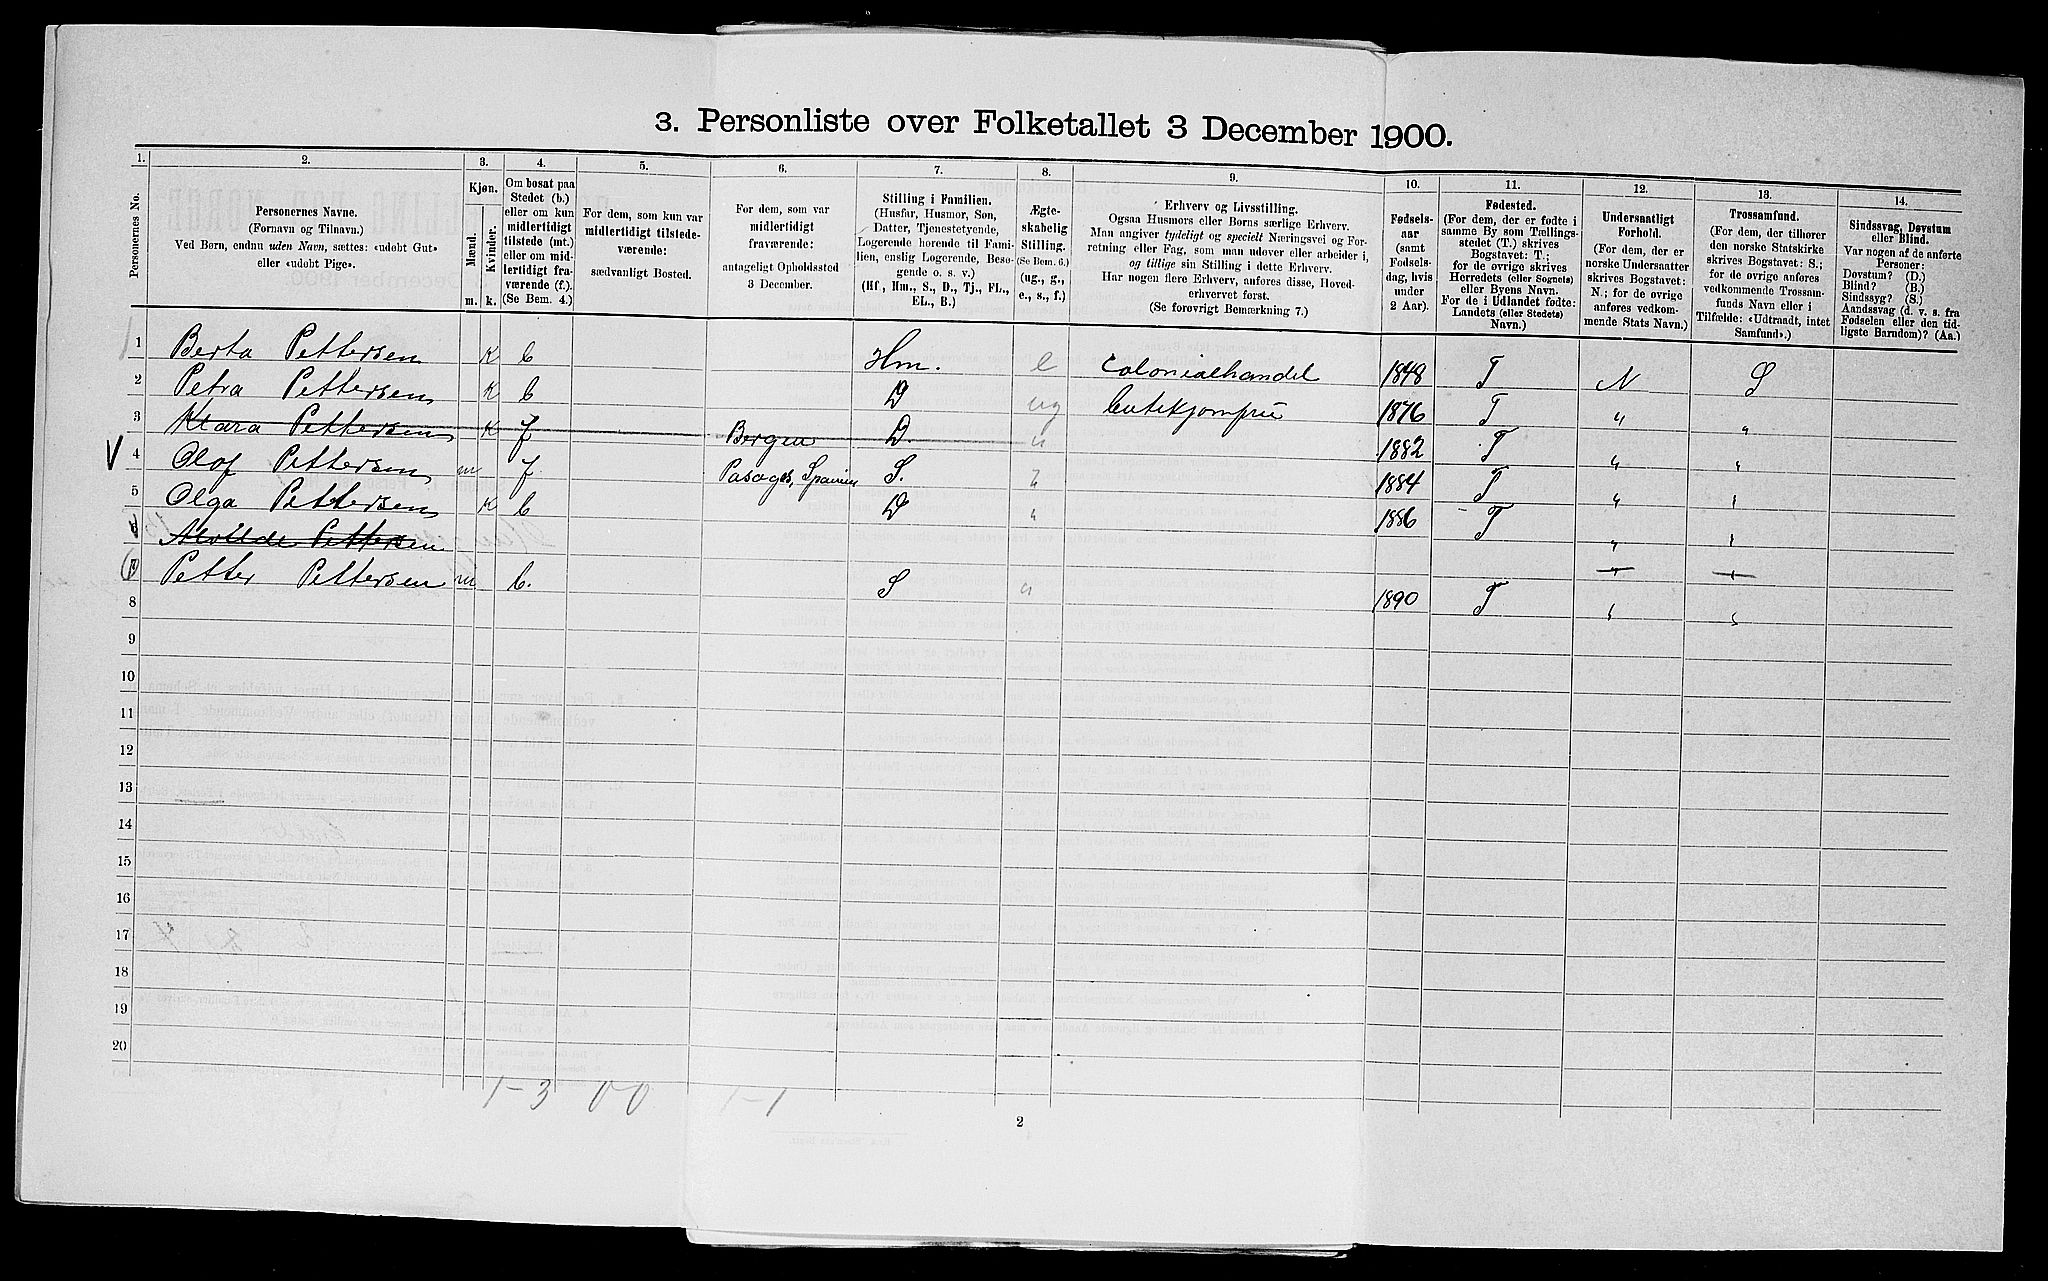 3. Personliste over Folketallet 3 December 1900.
1. 2. 3. 4. 5. 6. 7. 8. 9. 10. 11. 12. 13. 14.
Personernes No.
Personernes Navne.
(Fornavn og Tilnavn.)
Ved Børn, endnu uden Navn, sættes: «udøbt Gut»
eller «udøbt Pige».
Kjøn.
Mænd. Kvinder.
m. k.
Om bosat paa
Stedet (b.)
eller om kun
midlertidigt
tilstede (mt.)
eller om mid-
lertidigt fra-
værende (f.).
(Se Bem. 4.)
For dem, som kun var
midlertidigt tilstede-
værende:
sædvanligt Bosted.
For dem, som var
midlertidigt
fraværende:
antageligt Opholdssted
3 December.
Stilling i Familien.
(Husfar, Husmor, Søn,
Datter, Tjenestetyende,
Logerende hørende til Fami-
lien, enslig Logerende, Besø-
gende o. s. v.)
(Hf., Hm., S., D., Tj., FL.,
EL., B.)
Ægte-
skabelig
Stilling.
(Se Bem. 6.)
(ug., g.,
e., s., f.)
Erhverv og Livsstilling.
Ogsaa Husmors eller Børns særlige Erhverv.
Man angiver tydeligt og specielt Næringsvei og For-
retning eller Fag, som man udøver eller arbeider i,
og tillige sin Stilling i dette Erhverv.
Har nogen flere Erhverv, anføres disse, Hoved-
erhvervet først.
(Se forøvrigt Bemærkning 7.)
Fødsels-
aar
(samt
Fødsels-
dag, hvis
under
2 Aar).
Fødested.
(For dem, der er fødte i
samme By som Tællings-
stedet (T.) skrives
Bogstavet: T.;
for de øvrige skrives
Herredets (eller Sognets)
eller Byens Navn.
For de i Udlandet fødte:
Landets (eller Stedets)
Navn.)
Undersaatligt
Forhold.
(For dem, der er
norske Undersaatter
skrives Bogstavet:
N.; for de øvrige
anføres vedkom-
mende Stats Navn.)
Trossamfund.
(For dem, der tilhører
den norske Statskirke
skrives Bogstavet: S.;
for de øvrige anføres
vedkommende Trossam-
funds Navn eller i
Tilfælde: «Udtraadt, intet
Samfund».)
Sindssvag, Døvstum
eller Blind.
Var nogen af de anførte
Personer:
Døvstum? (D.)
Blind? (B.)
Sindssyg? (S.)
Aandssvag (d. v. s. fra
Fødselen eller den tid-
ligste Barndom)? (Aa.)
1 Berta Pettersen K b Hm. e Colonialhandel 1848 T N S
2 Petra Pettersen K b D ug Butikjomfru 1876 T " "
3 Klara Pettersen K f Bergen D. " 1882 T " "
V 4 Olof Pettersen m f. Pasages, Spanien S. " 1884 T " "
5 Olga Pettersen K b D " 1886 T " "
Pettersen " "
Petter Pettersen m b. S " 1890 T " "
8
9
10
11
12
13
14
15
16
17
18
19
20
1-3 00 1-1
2